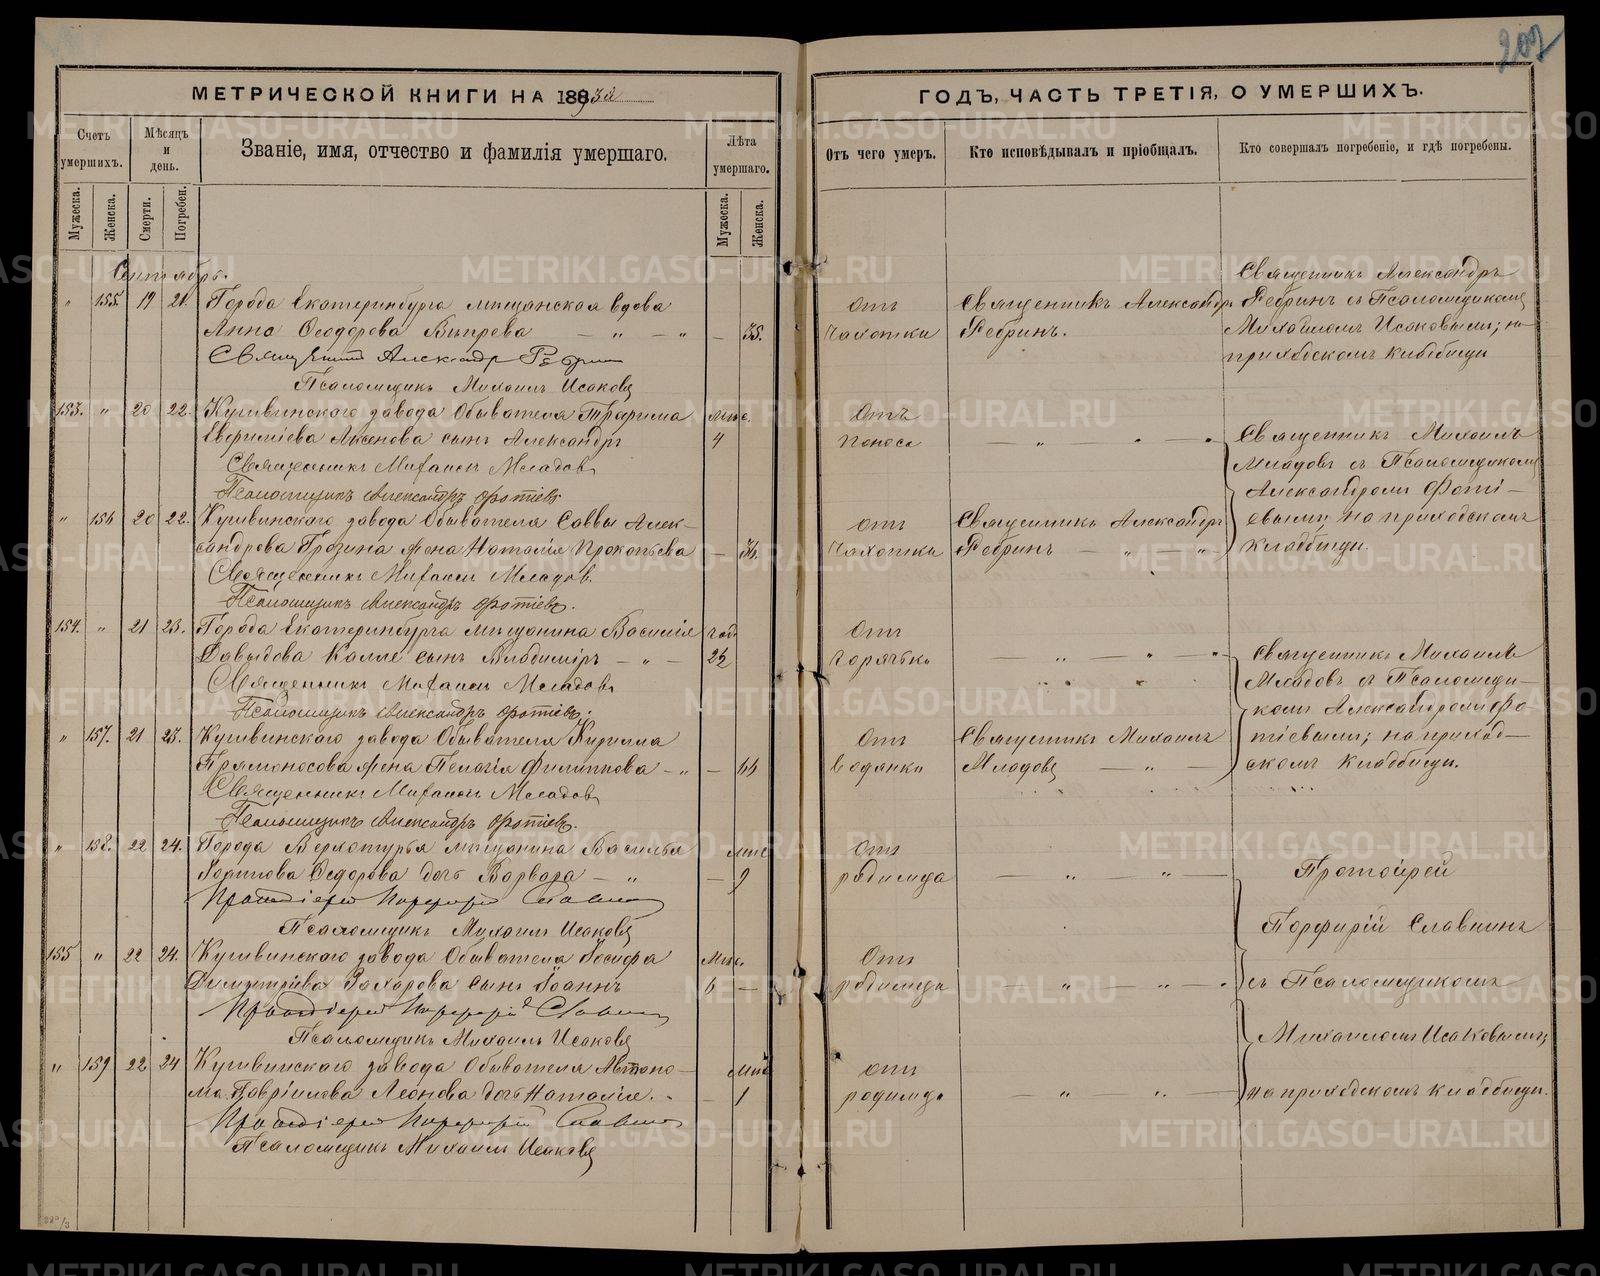 207
МЕТРИЧЕСКОЙ КНИГИ НА 1893й
ГОДЪ, ЧАСТЬ ТРЕТІЯ, О УМЕРШИХЪ.
Счетъ умершихъ.
Мѣсяцъ и день.
Званіе, имя, отчество и фамилія умершаго.
Лѣта умершаго.
Отъ чего умеръ.
Кто исповѣдывалъ и пріобщалъ.
Кто совершалъ погребеніе, и гдѣ погребены.
Мужеска.
Женска.
Смерти.
Погребен.
Мужеска.
Женска.
Сентябрь.
" 155. 19 21. Города Екатеринбурга мѣщанская вдова
Анна Ѳеодорова Вырева — " — " — 35.
Отъ
чахотки
Священникъ Александръ
Ребринъ.
Священникъ Александръ
Ребринъ съ Псаломщикомъ
Михаиломъ Исаковымъ; на
приходскомъ кладбищѣ
Священникъ Александръ Ребринъ
Псаломщикъ Михаилъ Исаковъ
153. " 20 22. Кушвинскаго завода Обывателя Трафима мѣс.
Евфиміева Аксенова сынъ Александръ 4
Отъ
поноса
— " " "
Священникъ Михаилъ Младовъ
Псаломщикъ Александръ Фотіевъ
" 156 20 22. Кушвинскаго завода Обывателя Саввы Алек-
сандрова Прозина жена Наталія Прокопьева — 36.
Отъ
чахотки
Священникъ Александръ
Ребринъ — " — "
Священникъ Михаилъ
Младовъ съ Псаломщикомъ
Александромъ Фоті-
евымъ; на приходскомъ
кладбищѣ.
Священникъ Михаилъ Младовъ.
Псаломщикъ Александръ Фотіевъ.
154. " 21 23. Города Екатеринбурга мѣщанина Василія год.
Давыдова Калле сынъ Владиміръ — " — 2½
Отъ
горячки
" — " — "
Священникъ Михаилъ Младовъ
Псаломщикъ Александръ Фотіевъ.
" 157. 21 23. Кушвинскаго завода Обывателя Кирилла
Прямоносова жена Пелагія Филиппова — " — 66
Отъ
водянки
Священникъ Михаилъ
Младовъ — " —
Священникъ Михаилъ
Младовъ съ Псаломщи-
комъ Александромъ Фо-
тіевымъ; на приход-
скомъ кладбищѣ.
Священникъ Михаилъ Младовъ
Псаломщикъ Александръ Фотіевъ.
" 158. 22 24. Города Верхотурья мѣщанина Василья мѣс
Ѳедорова дочь Варвара — " — 9
Отъ
родимца
— " — " —
Протоіерей Порфирій Славнинъ
Псаломщикъ Михаилъ Исаковъ
155 " 22 24. Кушвинскаго завода Обывателя Іосифа мѣс.
Димитріева Захарова сынъ Іоаннъ 6 —
Отъ
родимца
— " — " — "
Протоіерей Порфирій Славнинъ
Псаломщикъ Михаилъ Исаковъ
" 159 22 24 Кушвинскаго завода Обывателя Автоно- мѣс
ма Гавріилова Леонова дочь Наталія. — 1
Отъ
родимца
— " — " —
Протоіерей
Порфирій Славнинъ
съ Псаломщикомъ
Михаиломъ Исаковымъ;
на приходскомъ кладбищѣ.
Протоіерей Порфирій Славнинъ
Псаломщикъ Михаилъ Исаковъ
METRIKI.GASO-URAL.RU